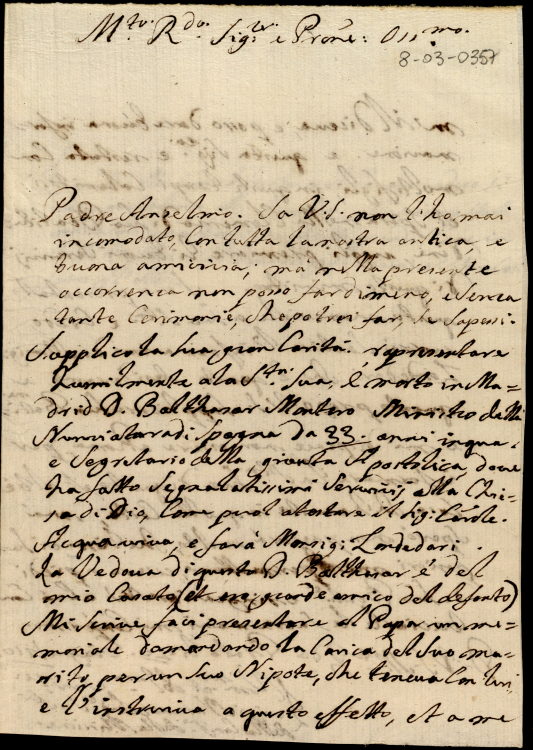 M.to R.do Sig.r e Prone: Oss.mo
8-03-0357
Padre Anselmo. Sa V.S. non l'ho mai
incomodato, con tutta la nostra antica, e
buona amicizia; ma nella presente
occorrenza non posso far di meno, e senza
tante Cerimonie, che potrei far, se sapessi.
Supplico la sua gran Carità rapresentare
humilmente a la S.tà Sua, è morto in Ma=
drid D. Balthasar Montero Ministro della
Nunziatura di Spagna da 33. anni in qua,
e Segretario della giunta Apostolica, dove
ha fatto segnalatissimi servizij alla Chie=
sa di Dio, come può attestare il Sig: Card.le
Acquaviva, e farà Monsig: Zondedari.
La Vedova di questo D. Balthasar è del
mio Casato (et era grande amico del defonto)
Mi scrive, facci presentare al Papa un me=
moriale domandando la Carica del suo ma=
rito, per un suo Nipote, che teneva con lui,
e l'instruiva a questo effetto, et a me